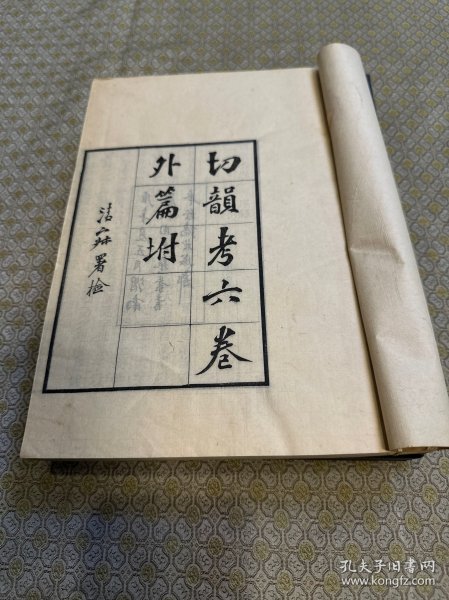 切韻考六卷
外篇坿
署檢
孔夫子旧书网
www.kongfz.com